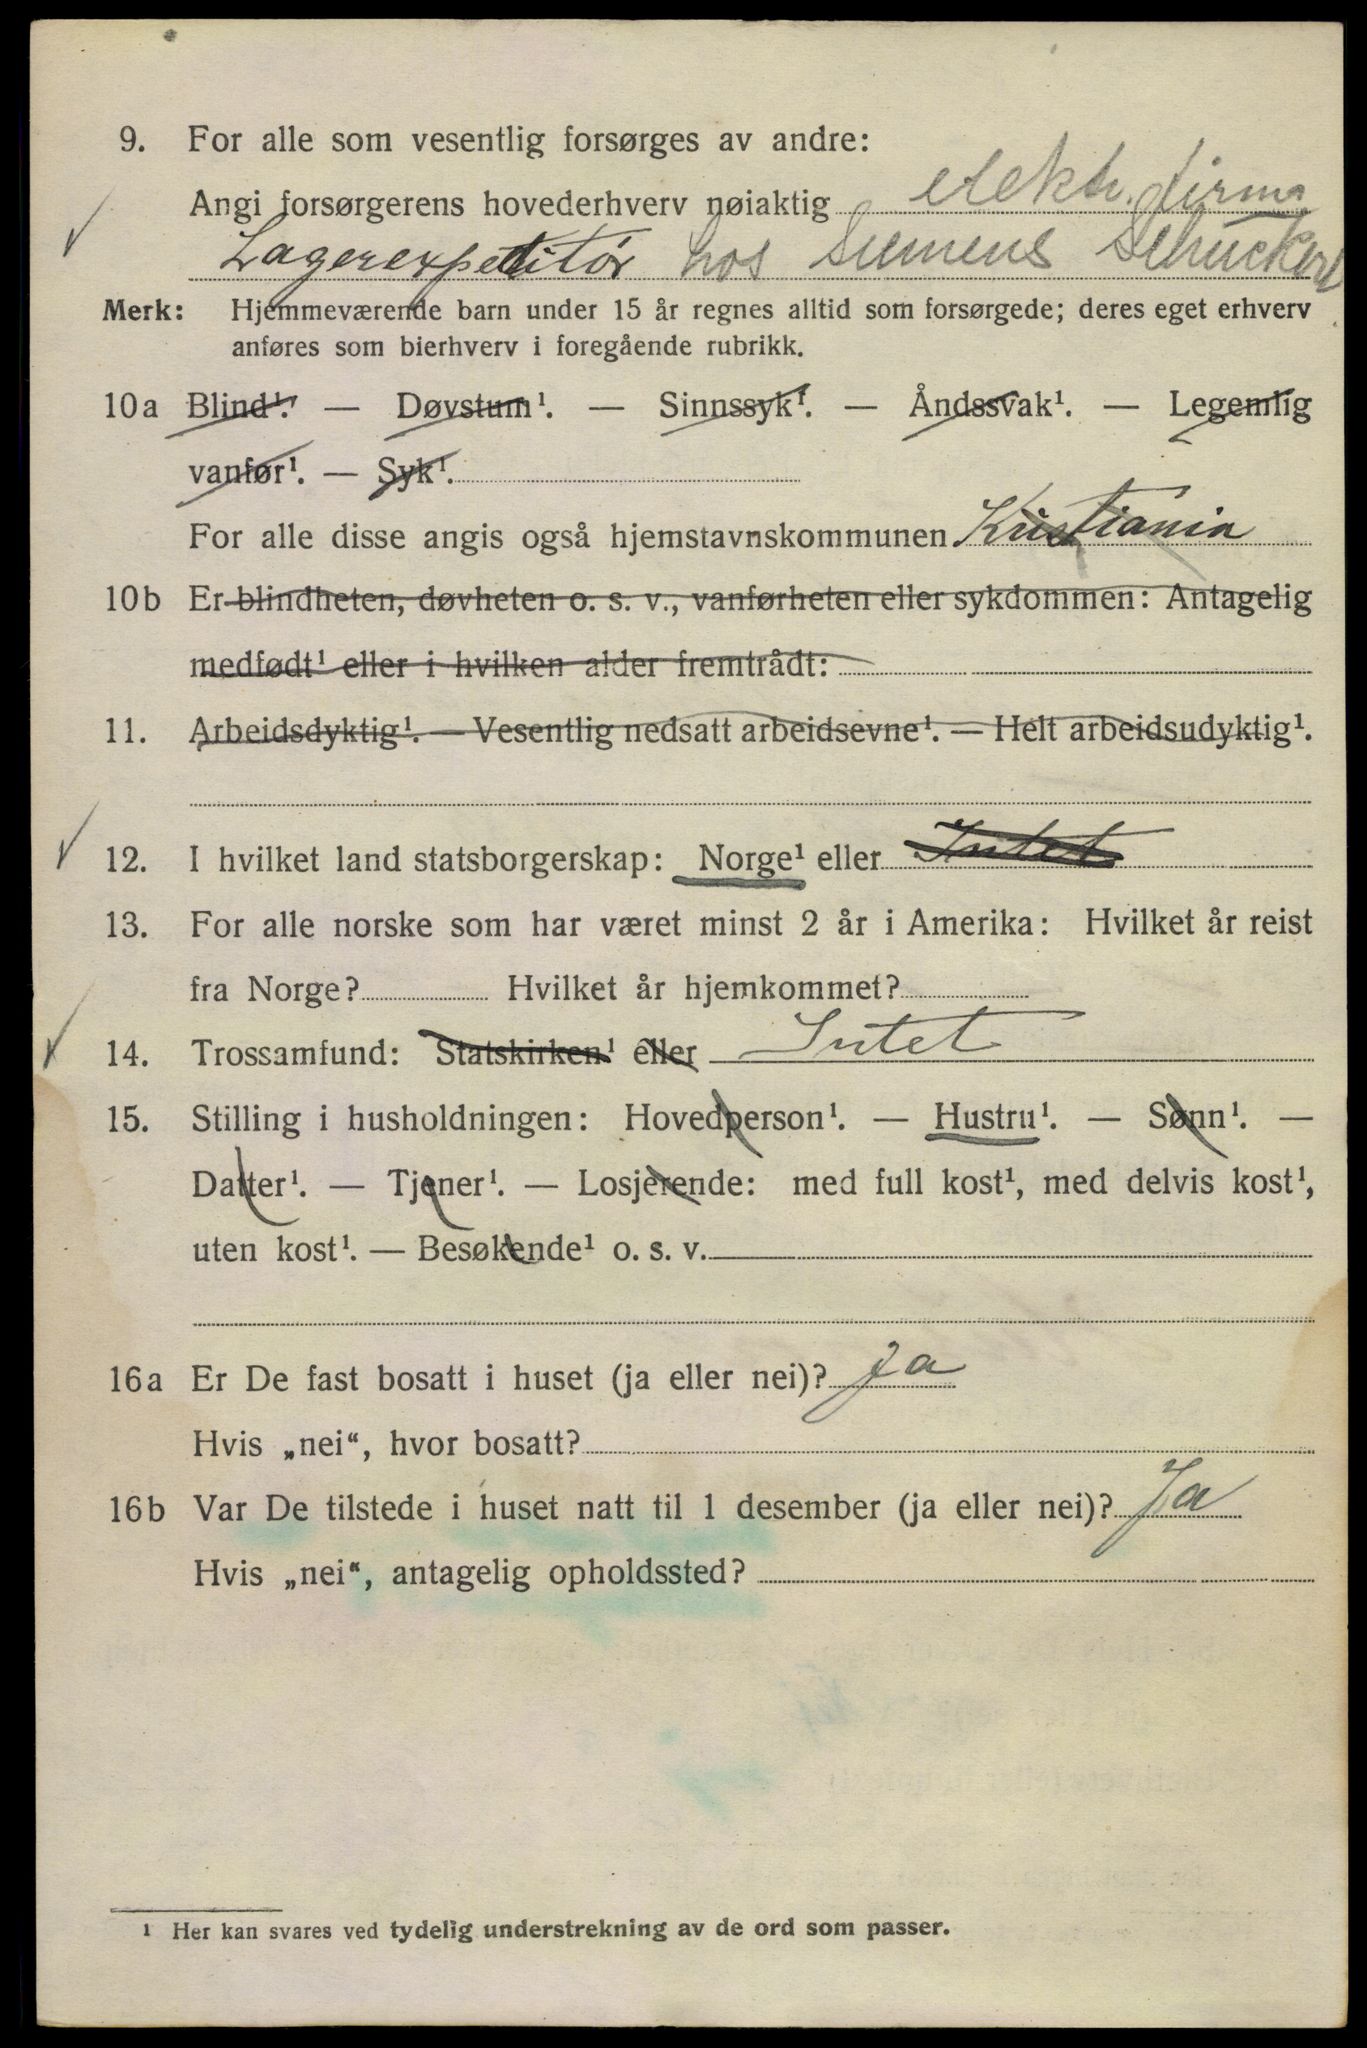 9. For alle som vesentlig forsørges av andre:
elektr. firma
Angi forsørgerens hovederhverv nøiaktig
Lagerexpeditør hos Siemens Schuckert
Merk: Hjemmeværende barn under 15 år regnes alltid som forsørgede; deres eget erhverv
anføres som bierhverv i foregående rubrikk.
10a Blind¹. — Døvstum¹. — Sinnssyk¹. — Åndssvak¹. — Legemlig
vanfør¹. — Syk¹.
For alle disse angis også hjemstavnskommunen Kristiania
10b Er blindheten, døvheten o. s. v., vanførheten eller sykdommen: Antagelig
medfødt¹ eller i hvilken alder fremtrådt:
11. Arbeidsdyktig¹. — Vesentlig nedsatt arbeidsevne¹. — Helt arbeidsudyktig¹.
12. I hvilket land statsborgerskap: Norge¹ eller Intet
13. For alle norske som har været minst 2 år i Amerika: Hvilket år reist
fra Norge? Hvilket år hjemkommet?
14. Trossamfund: Statskirken¹ eller Intet
15. Stilling i husholdningen: Hovedperson¹. — Hustru¹. — Sønn¹. —
Datter¹. — Tjener¹. — Losjerende: med full kost¹, med delvis kost¹,
uten kost¹. — Besøkende¹ o. s. v.
16a Er De fast bosatt i huset (ja eller nei)? ja
Hvis „nei“, hvor bosatt?
16b Var De tilstede i huset natt til 1 desember (ja eller nei)? Ja
Hvis „nei“, antagelig opholdssted?
¹ Her kan svares ved tydelig understrekning av de ord som passer.